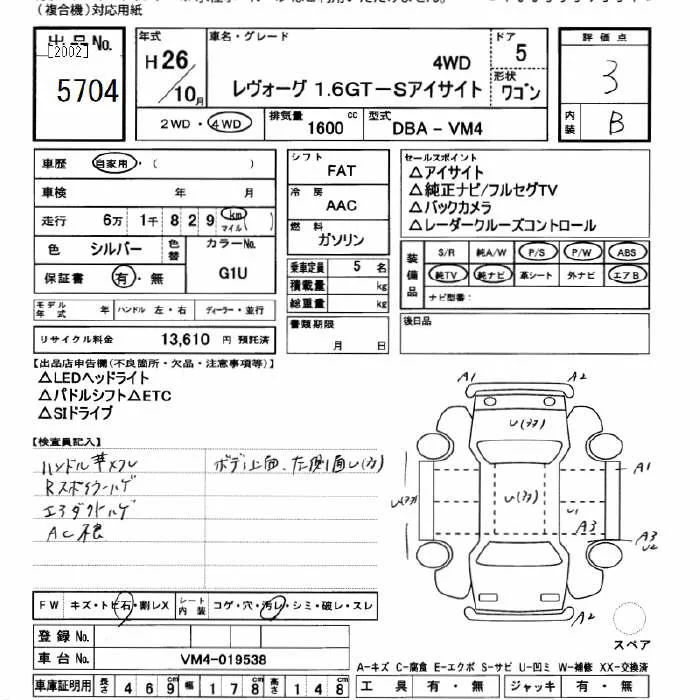 (複合機)対応用紙
出品No.
[2002]
5704
年式
H26
10月
車名・グレード
4WD
レヴォーグ 1.6GT-Sアイサイト
ドア
5
形状
ワゴン
2WD・4WD
排気量
1600 cc
型式
DBA-VM4
評価点
3
内装
B
車歴 自家用・( )
車検 年 月
走行 6万 1千 8 2 9 km マイル ( )
色 シルバー 色替
カラーNo.
G1U
保証書 有・無
モデル年式 年 ハンドル 左・右 ディーラー・並行
リサイクル料金 13,610 円 預託済
シフト
FAT
冷房
AAC
燃料
ガソリン
乗車定員 5 名
積載量 kg
総重量 kg
書類期限
月 日
セールスポイント
△アイサイト
△純正ナビ/フルセグTV
△バックカメラ
△レーダークルーズコントロール
装備品
S/R 純A/W P/S P/W ABS
純TV 純ナビ 革シート 外ナビ エアB
ナビ型番:
後日品
【出品店申告欄(不良箇所・欠品・注意事項等)】
△LEDヘッドライト
△パドルシフト△ETC
△SIドライブ
【検査員記入】
ハンドル革スレ
Rスポイラーハゲ
エアダクトハゲ
AC不良
ボディ上面、左側面U(ヌカ)
FW キズ・トビ石・割レX
シート内装 コゲ・穴・汚レ・シミ・破レ・スレ
登録No.
車台No. VM4-019538
車庫証明用 長さ 4 6 9 cm 幅 1 7 8 cm 高さ 1 4 8 cm
A1
A2
A1
U1
A3
A3
U2
A2
スペア
A-キズ C-腐食 E-エクボ S-サビ U-凹ミ W-補修 XX-交換済
工具 有・無 ジャッキ 有・無